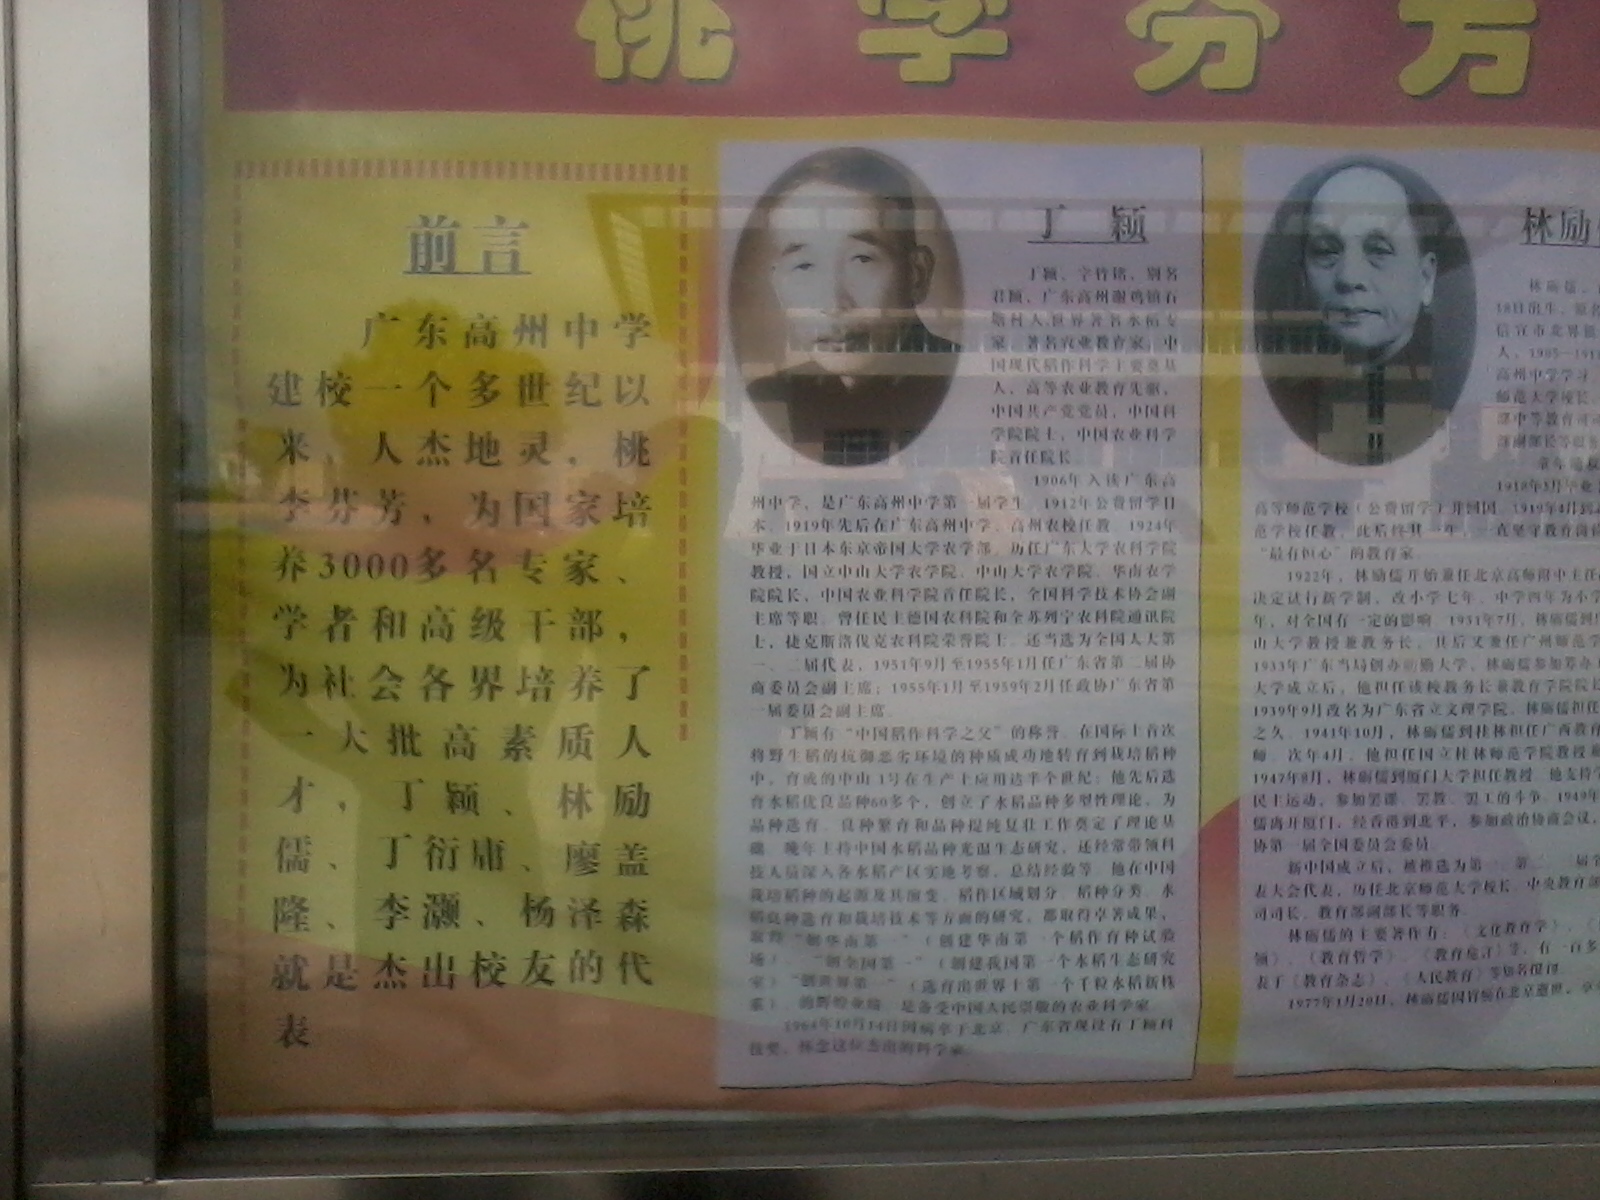 桃李芬芳
前言
广东高州中学
建校一个多世纪以
来，人杰地灵，桃
李芬芳，为国家培
养3000多名专家、
学者和高级干部，
为社会各界培养了
一大批高素质人
才，丁颖、林励
儒、丁衍庸、廖盖
隆、李灏、杨泽森
就是杰出校友的代
表
丁颖
丁颖，字竹铭，别名
君颖，广东高州谢鸡镇石
塘村人.世界著名水稻专
家，著名农业教育家，中
国现代稻作科学主要奠基
人，高等农业教育先驱，
中国共产党党员，中国科
学院院士，中国农业科学
院首任院长
1906年入读广东高
州中学，是广东高州中学第一届学生 1912年公费留学日
本．1919年先后在广东高州中学、高州农校任教．1924年
毕业于日本东京帝国大学农学部．历任广东大学农科学院
教授，国立中山大学农学院、中山大学农学院、华南农学
院院长，中国农业科学院首任院长，全国科学技术协会副
主席等职．曾任民主德国农科院和全苏列宁农科院通讯院
士，捷克斯洛伐克农科院荣誉院士．还当选为全国人大第
一、二届代表，1951年9月至1955年1月任广东省第二届协
商委员会副主席；1955年1月至1959年2月任政协广东省第
一届委员会副主席
丁颖有“中国稻作科学之父”的称誉．在国际上首次
将野生稻的抗御恶劣环境的种质成功地转育到栽培稻种
中，育成的中山1号在生产上应用达半个世纪；他先后选
育水稻优良品种60多个，创立了水稻品种多型性理论，为
品种选育、良种繁育和品种提纯复壮工作奠定了理论基
础．晚年主持中国水稻品种光温生态研究，还经常带领科
技人员深入各水稻产区实地考察，总结经验等．他在中国
栽培稻种的起源及其演变、稻作区域划分、稻种分类、水
稻良种选育和栽培技术等方面的研究，都取得卓著成果，
“创华南第一”（创建华南第一个稻作育种试验
场）、“创全国第一”（创建我国第一个水稻生态研究
室）“创世界第一”（选育出世界上第一个千粒水稻新株
系）的辉煌业绩，是备受中国人民崇敬的农业科学家
1964年10月14日因病卒于北京．广东省现设有丁颖科
技奖，怀念这位杰出的科学家
林励
林砺儒，
18日出生，原名
信宜市北界镇
人，1905—191
高州中学学习
师范大学校长，
部中等教育司
部副部长等职
1918年3月毕业
高等师范学校（公费留学）并回国．1919年4月到
范学校任教．此后终其一年，一直坚守教育岗位
“最有恒心”的教育家
1922年，林励儒开始兼任北京高师附中主任
决定试行新学制，改小学七年、中学四年为小学
年，对全国有一定的影响．1931年7月，林砺儒到
山大学教授兼教务长，其后又兼任广州师范学
1933年广东当局创办勷勤大学，林砺儒参加筹办
大学成立后，他担任该校教务长兼教育学院院长
1939年9月改名为广东省立文理学院，林砺儒担任
之久．1941年10月，林砺儒到桂林担任广西教育
师．次年4月，他担任国立桂林师范学院教授兼
1947年8月，林砺儒到厦门大学担任教授．他支持学
民主运动，参加罢课、罢教、罢工的斗争．1949年
儒离开厦门，经香港到北平，参加政治协商会议，
协第一届全国委员会委员
新中国成立后，被推选为第一、第二、三届全
表大会代表，历任北京师范大学校长、中央教育部
司司长、教育部副部长等职务
林砺儒的主要著作有：《文化教育学》、《
领》、《教育哲学》、《教育危言》等，有一百多
表于《教育杂志》、《人民教育》等知名报刊
1977年1月20日，林砺儒因胃癌在北京逝世，享